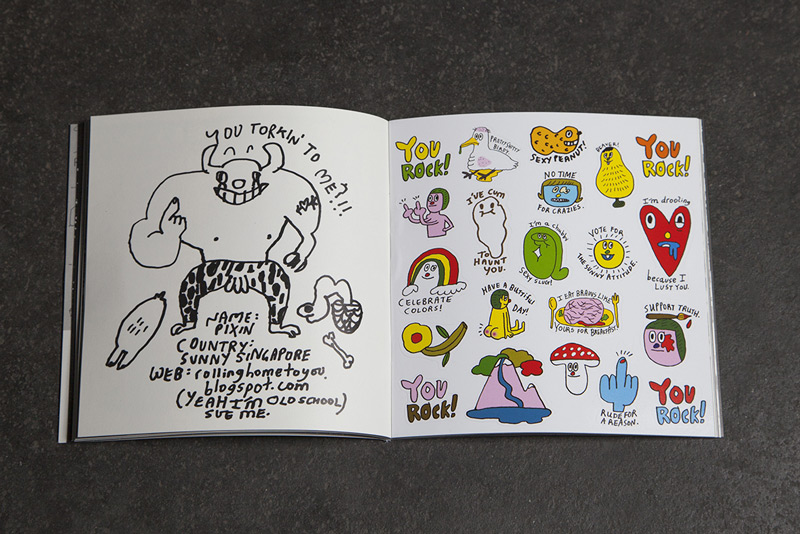 YOU TORKIN' TO ME?!!!
NAME:
PIXIN
COUNTRY:
SUNNY SINGAPORE
WEB: rollinghometoyou.
blogspot.com
(YEAH I'M OLD SCHOOL)
SUE ME.
YOU
ROCK!
SEXY PEANUT!
YOU
ROCK!
NO TIME
FOR CRAZIES.
I'VE CUM
TO
HAUNT
YOU.
I'm a chubby
SEXY SLUG!
VOTE FOR
THE SUNNY ATTITUDE.
I'm drooling
because I
LUST YOU.
CELEBRATE
COLORS!
HAVE A
DAY!
I EAT BRAINS LIKE
YOURS FOR BREAKFAST.
SUPPORT TRUTH.
YOU
ROCK!
RUDE FOR
A REASON.
YOU
ROCK!